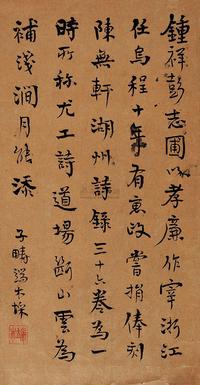 鍾祥彭志圃以孝廉作宰浙江
任烏程十年有惠政嘗捐俸刻
陳無軒湖州詩錄三十六卷為一
時所称尤工詩道場斷山雲為
補淺澗月能添
子疇端木埰